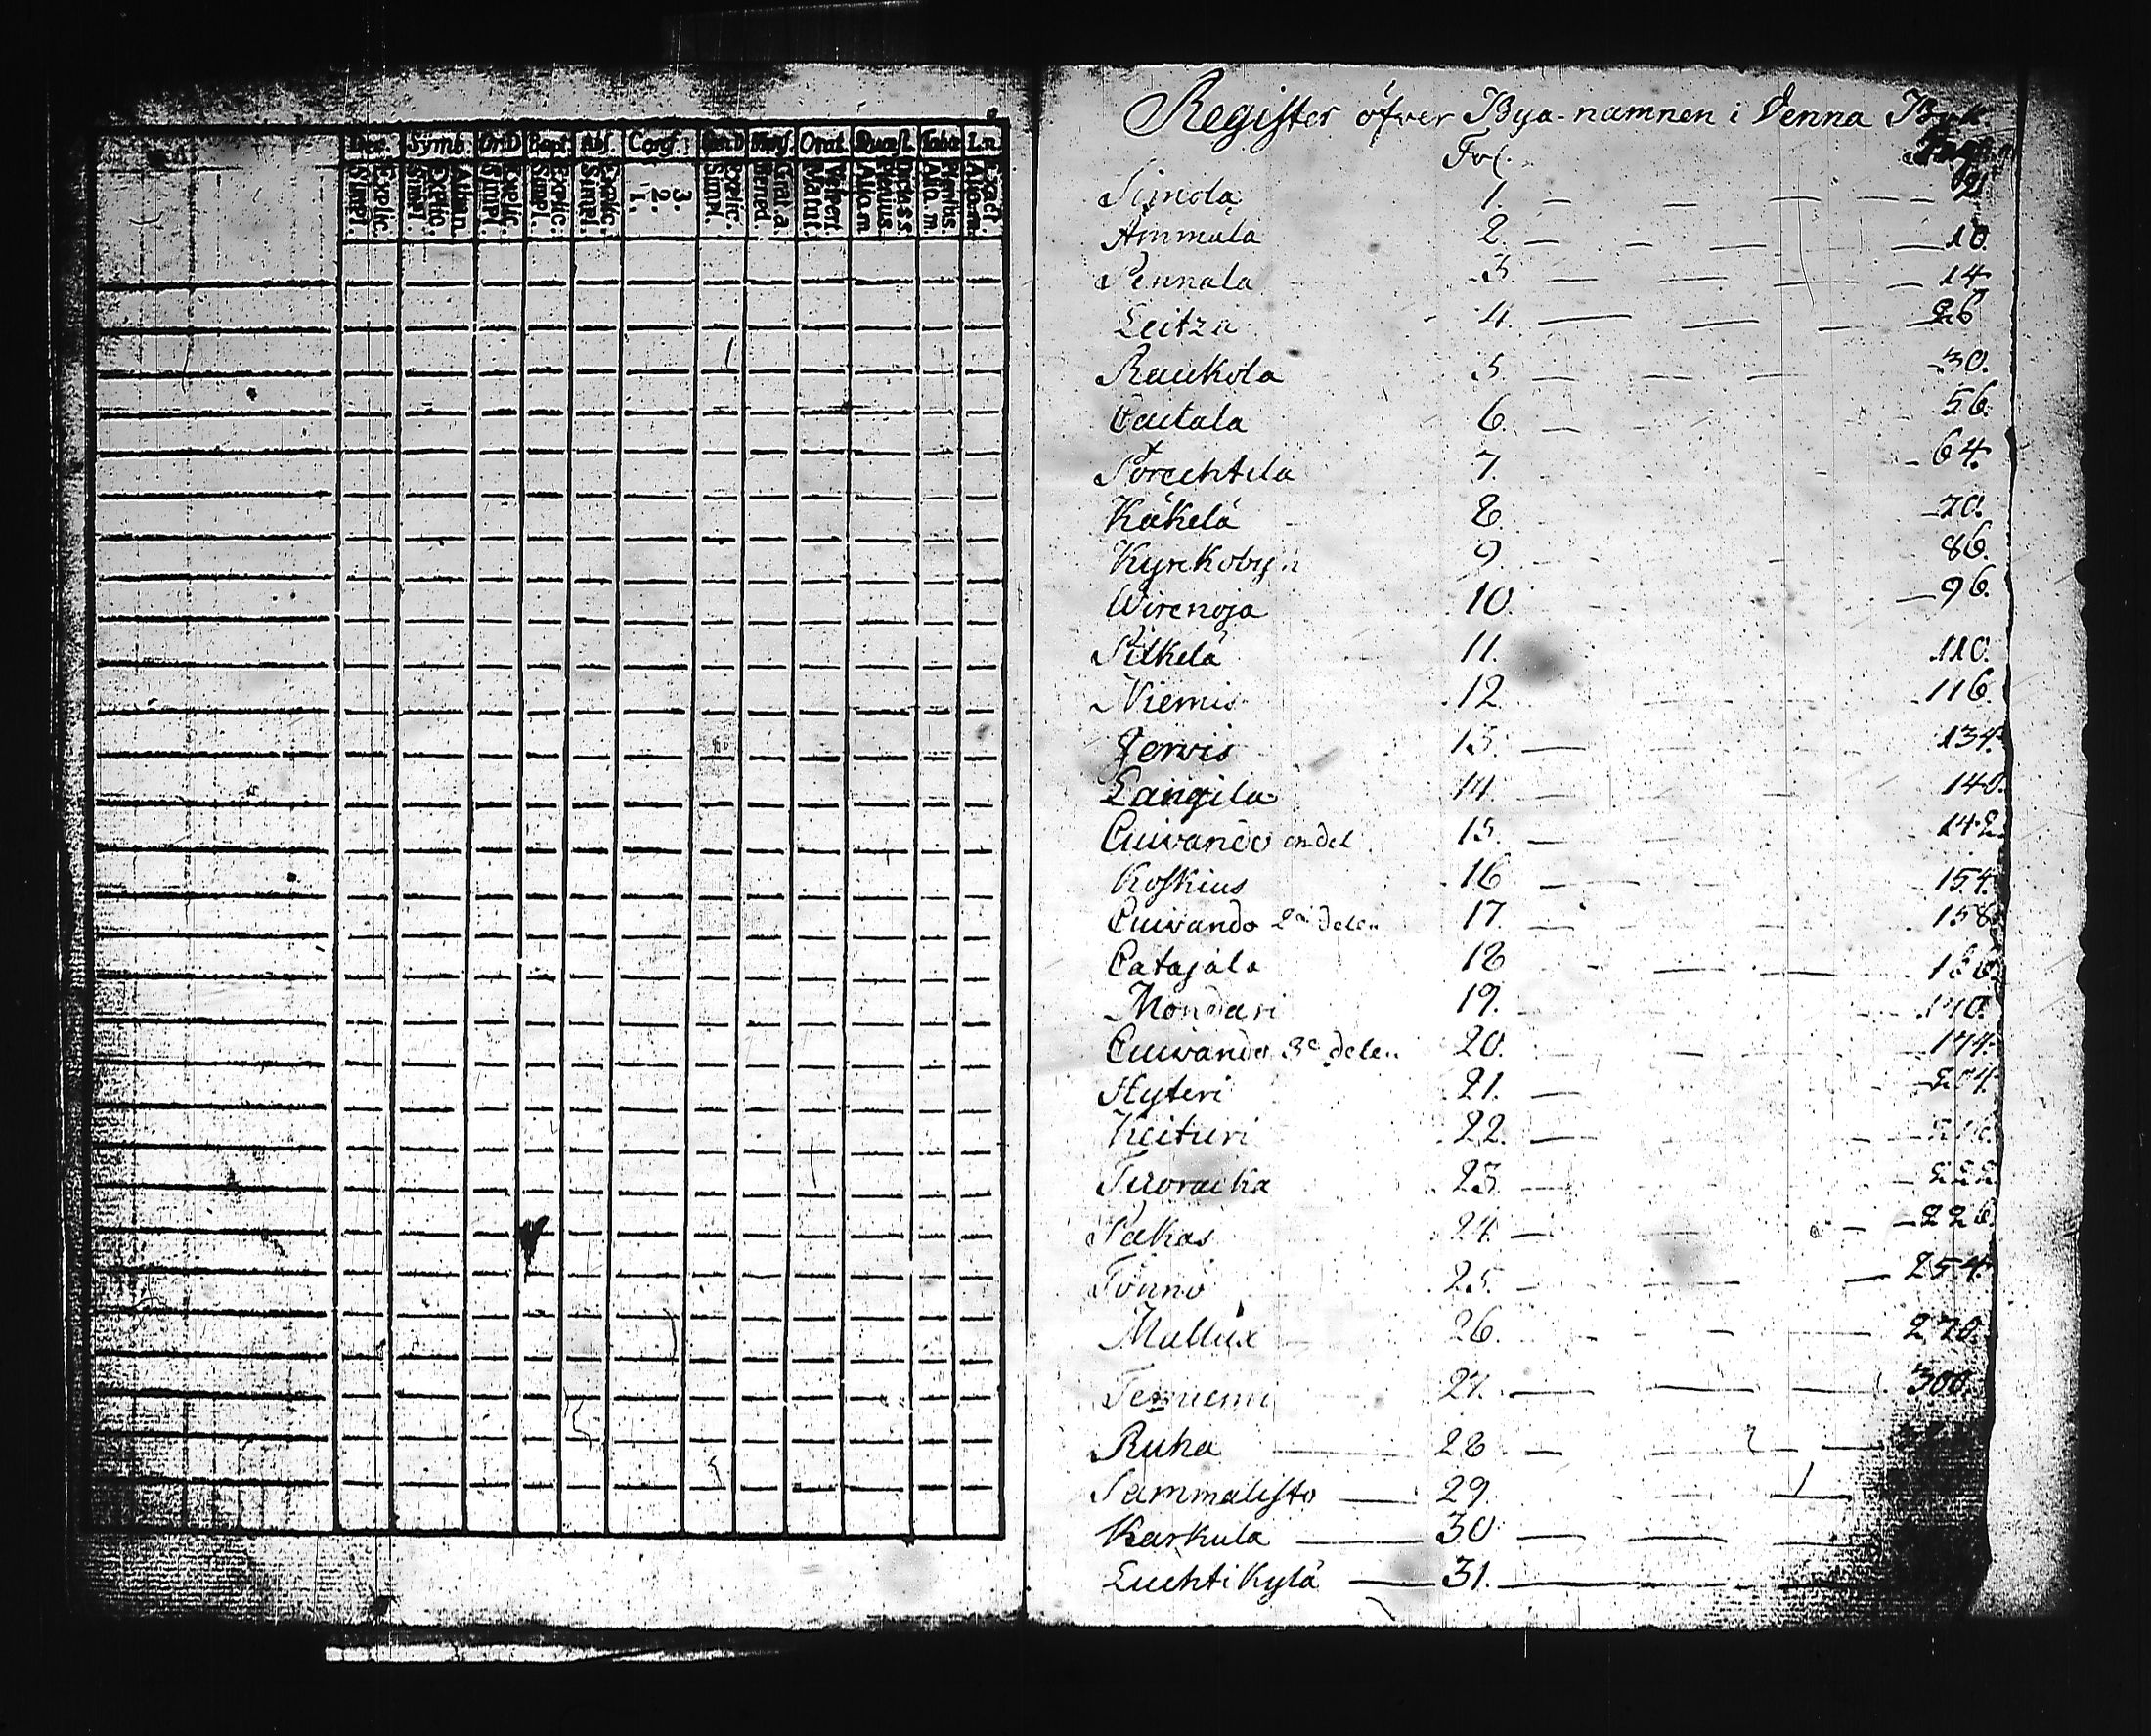 Dec. Symb. Or.D Bapt. Abs. Conf. Orat. Quæst. Tabæ L.n.
Explic. Simpl.
Athan. Explic. Simpl.
Explic. Simpl.
Explic. Simpl.
Explic. Simpl.
3. 2. 1.
Explic. Simpl.
Grat.a. Bened.
Vesper. Matut.
Dicta s.s. Plenius. Aliq.m
Plenius. Aliq.m.
Exact. Aliq.m
Register öfver Bya-namnen i Denna Bok
Fol.
Simola 1. 2
Ammala 2. 10.
Pennala 3. 14
Leitza 4. 26
Raukola 5. 30.
Cautala 6. 56.
Torechtila 7. 64.
Käkelä 8. 70.
Kyrkobyn 9. 86.
Wirenoja 10. 96.
Pilkelä 11. 110.
Niemis 12. 116.
Jerwis 13. 134.
Langila 14. 140.
Cuivando en del 15. 142.
Koskius 16 154.
Cuivando 2a delen 17. 158
Catajala 18
Mondari 19. 170.
Cuivando 3e delen 20. 174.
Hyteri 21. 204.
Keituri 22.
Tuoraika 23. 222
Pakas 24. 226.
Tönnö 25. 254.
Mallux 26. 270.
Terriemi 27. 300.
Ruha 28
Sammalisto 29.
Karkula 30
Luchtikylä 31.